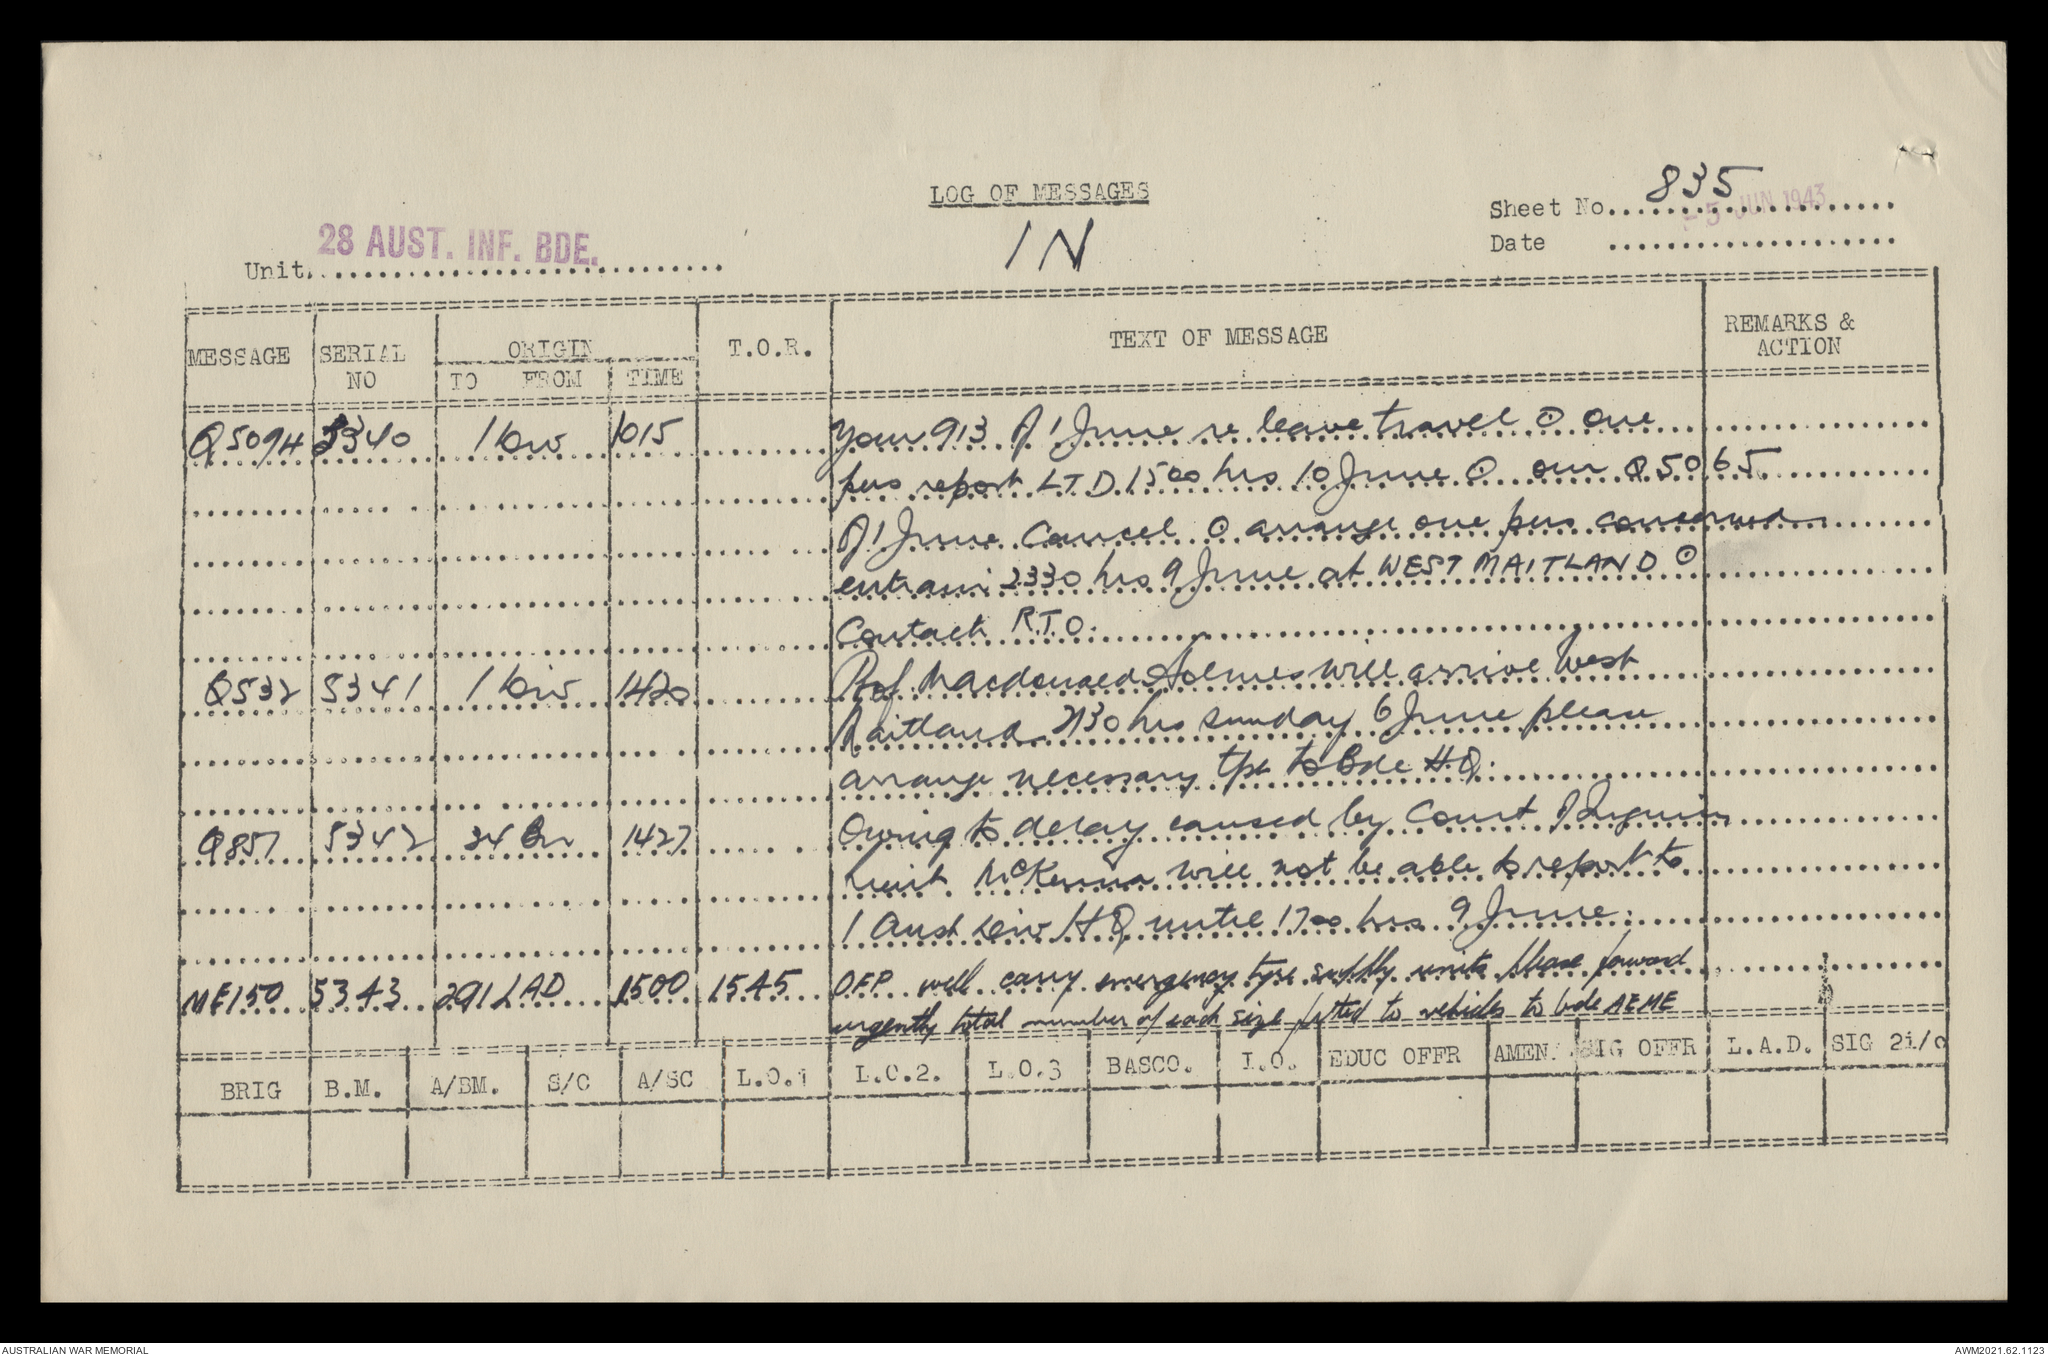 LOG OF MESSAGES
IN
Sheet No. 835
Date - 5 JUN 1943
Unit 28 AUST. INF. BDE.
MESSAGE SERIAL NO ORIGIN TO FROM TIME T.O.R. TEXT OF MESSAGE REMARKS & ACTION
Q5094 5340 1 Div 1015 Your 913 of 1 June re leave travel ⊙ one
pers report LTD 1500 hrs 10 June ⊙ our Q5065
of 1 June Cancel ⊙ arrange one pers concerned
entrain 2330 hrs 9 June at WEST MAITLAND ⊙
Contact R.T.O.
Q532 5341 1 Div 1420 Prof. Macdonald Holmes will arrive West
Maitland 2130 hrs Sunday 6 June please
arrange necessary tpt to Bde HQ.
Q857 5342 34 Bn 1427 Owing to delay caused by Court of Inquiry
Lieut. McKenna will not be able to report to
1 Aust Div HQ until 1700 hrs 9 June.
ME150 5343 291 LAD 1500 1545 OFP will carry emergency tyre supply units please forward
urgently total number of each size fitted to vehicles to bde AEME
BRIG B.M. A/BM. S/C A/SC L.O.1 L.O.2. L.O.3 BASCO. I.O. EDUC OFFR AMEN. SIG OFFR L.A.D. SIG 2i/c
AUSTRALIAN WAR MEMORIAL AWM2021.62.1123